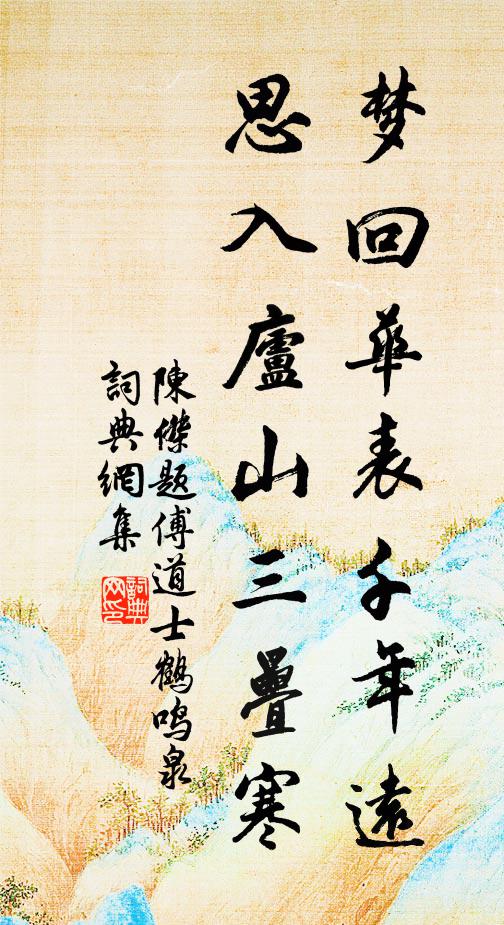 梦回華表千年遠
思入廬山三疊寒
陳傑題傅道士鶴鳴泉
詞典網集
詞典
网印